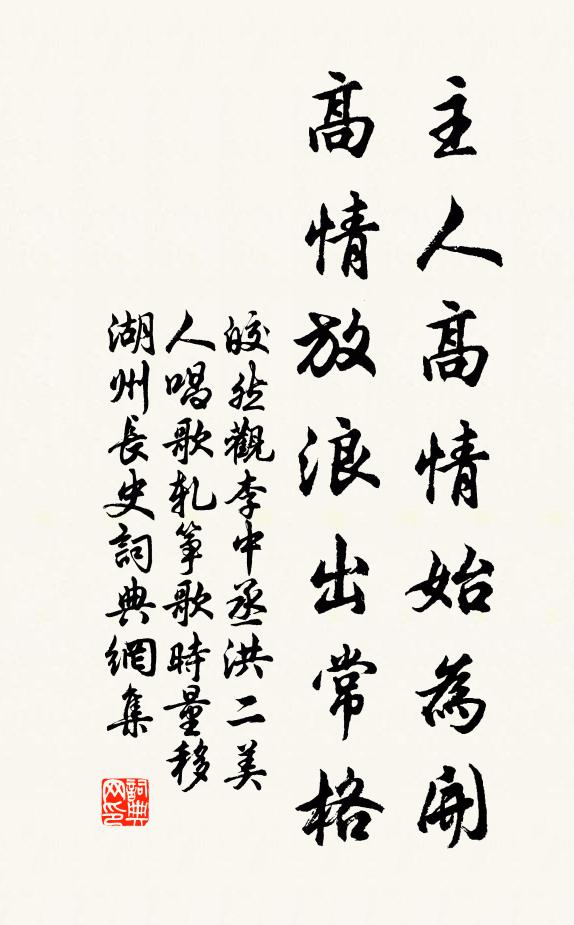 主人高情始為開
高情放浪出常格
皎然觀李中丞洪二美
人唱歌軋箏歌時量移
湖州長史詞典網集
詞典
网印